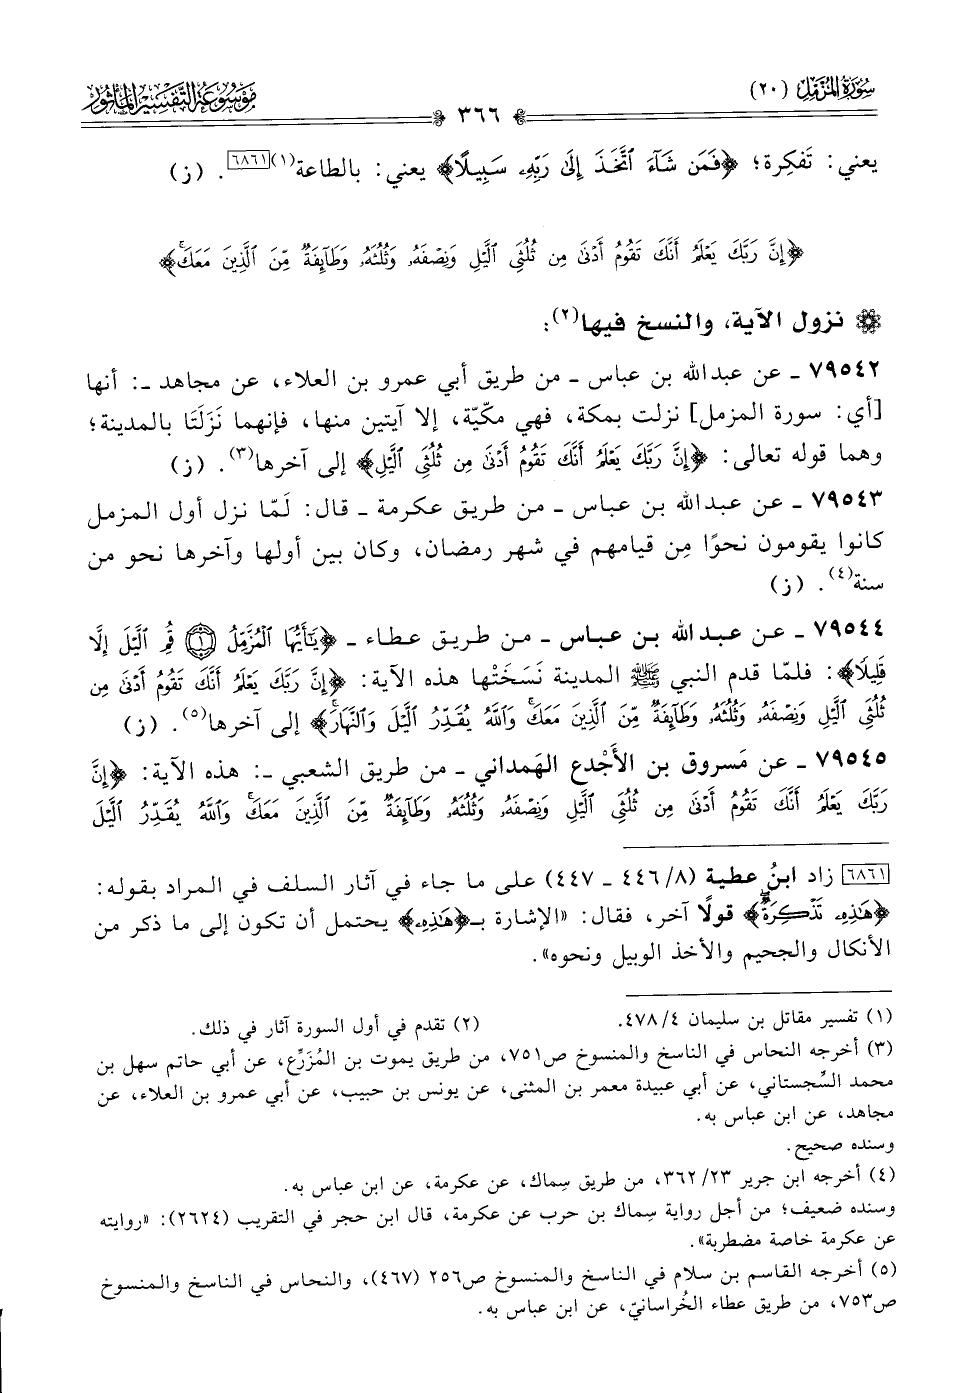 سورة المزمل (٢٠)
٣٦٦
موسوعة التفسير المأثور
يعني: تَفكِرة؛ ﴿فَمَن شَآءَ ٱتَّخَذَ إِلَىٰ رَبِّهِۦ سَبِيلًا﴾ يعني: بالطاعة(١)[٦٨٦١]. (ز)
﴿إِنَّ رَبَّكَ يَعْلَمُ أَنَّكَ تَقُومُ أَدْنَىٰ مِن ثُلُثَىِ ٱلَّيْلِ وَنِصْفَهُۥ وَثُلُثَهُۥ وَطَآئِفَةٌ مِّنَ ٱلَّذِينَ مَعَكَۚ﴾
نزول الآية، والنسخ فيها(٢):
٧٩٥٤٢ ـ عن عبدالله بن عباس ـ من طريق أبي عمرو بن العلاء، عن مجاهد ـ: أنها
[أي: سورة المزمل] نزلت بمكة، فهي مكّيّة، إلا آيتين منها، فإنهما نَزَلَتَا بالمدينة؛
وهما قوله تعالى: ﴿إِنَّ رَبَّكَ يَعْلَمُ أَنَّكَ تَقُومُ أَدْنَىٰ مِن ثُلُثَىِ ٱلَّيْلِ﴾ إلى آخرها(٣). (ز)
٧٩٥٤٣ ـ عن عبدالله بن عباس ـ من طريق عكرمة ـ قال: لَمّا نزل أول المزمل
كانوا يقومون نحوًا مِن قيامهم في شهر رمضان، وكان بين أولها وآخرها نحو من
سنة(٤). (ز)
٧٩٥٤٤ ـ عن عبدالله بن عباس ـ من طريق عطاء ـ ﴿يَٰٓأَيُّهَا ٱلْمُزَّمِّلُ ١ قُمِ ٱلَّيْلَ إِلَّا
قَلِيلًا﴾: فلمّا قدم النبي ﷺ المدينة نَسَخَتْها هذه الآية: ﴿إِنَّ رَبَّكَ يَعْلَمُ أَنَّكَ تَقُومُ أَدْنَىٰ مِن
ثُلُثَىِ ٱلَّيْلِ وَنِصْفَهُۥ وَثُلُثَهُۥ وَطَآئِفَةٌ مِّنَ ٱلَّذِينَ مَعَكَۚ وَٱللَّهُ يُقَدِّرُ ٱلَّيْلَ وَٱلنَّهَارَۚ﴾ إلى آخرها(٥). (ز)
٧٩٥٤٥ ـ عن مَسروق بن الأَجْدع الهَمداني ـ من طريق الشعبي ـ: هذه الآية: ﴿إِنَّ
رَبَّكَ يَعْلَمُ أَنَّكَ تَقُومُ أَدْنَىٰ مِن ثُلُثَىِ ٱلَّيْلِ وَنِصْفَهُۥ وَثُلُثَهُۥ وَطَآئِفَةٌ مِّنَ ٱلَّذِينَ مَعَكَۚ وَٱللَّهُ يُقَدِّرُ ٱلَّيْلَ
[٦٨٦١] زاد ابنُ عطية (٤٤٦/٨ ـ ٤٤٧) على ما جاء في آثار السلف في المراد بقوله:
﴿هَٰذِهِۦ تَذْكِرَةٌۖ﴾ قولًا آخر، فقال: «الإشارة بـ﴿هَٰذِهِۦ﴾ يحتمل أن تكون إلى ما ذكر من
الأنكال والجحيم والأخذ الوبيل ونحوه».
(١) تفسير مقاتل بن سليمان ٤٧٨/٤. (٢) تقدم في أول السورة آثار في ذلك.
(٣) أخرجه النحاس في الناسخ والمنسوخ ص٧٥١، من طريق يموت بن المُزَرِّع، عن أبي حاتم سهل بن
محمد السِّجستاني، عن أبي عبيدة معمر بن المثنى، عن يونس بن حبيب، عن أبي عمرو بن العلاء، عن
مجاهد، عن ابن عباس به.
وسنده صحيح.
(٤) أخرجه ابن جرير ٣٦٢/٢٣، من طريق سِماك، عن عكرمة، عن ابن عباس به.
وسنده ضعيف؛ من أجل رواية سِماك بن حرب عن عكرمة، قال ابن حجر في التقريب (٢٦٢٤): «روايته
عن عكرمة خاصة مضطربة».
(٥) أخرجه القاسم بن سلام في الناسخ والمنسوخ ص٢٥٦ (٤٦٧)، والنحاس في الناسخ والمنسوخ
ص٧٥٣، من طريق عطاء الخُراسانيّ، عن ابن عباس به.